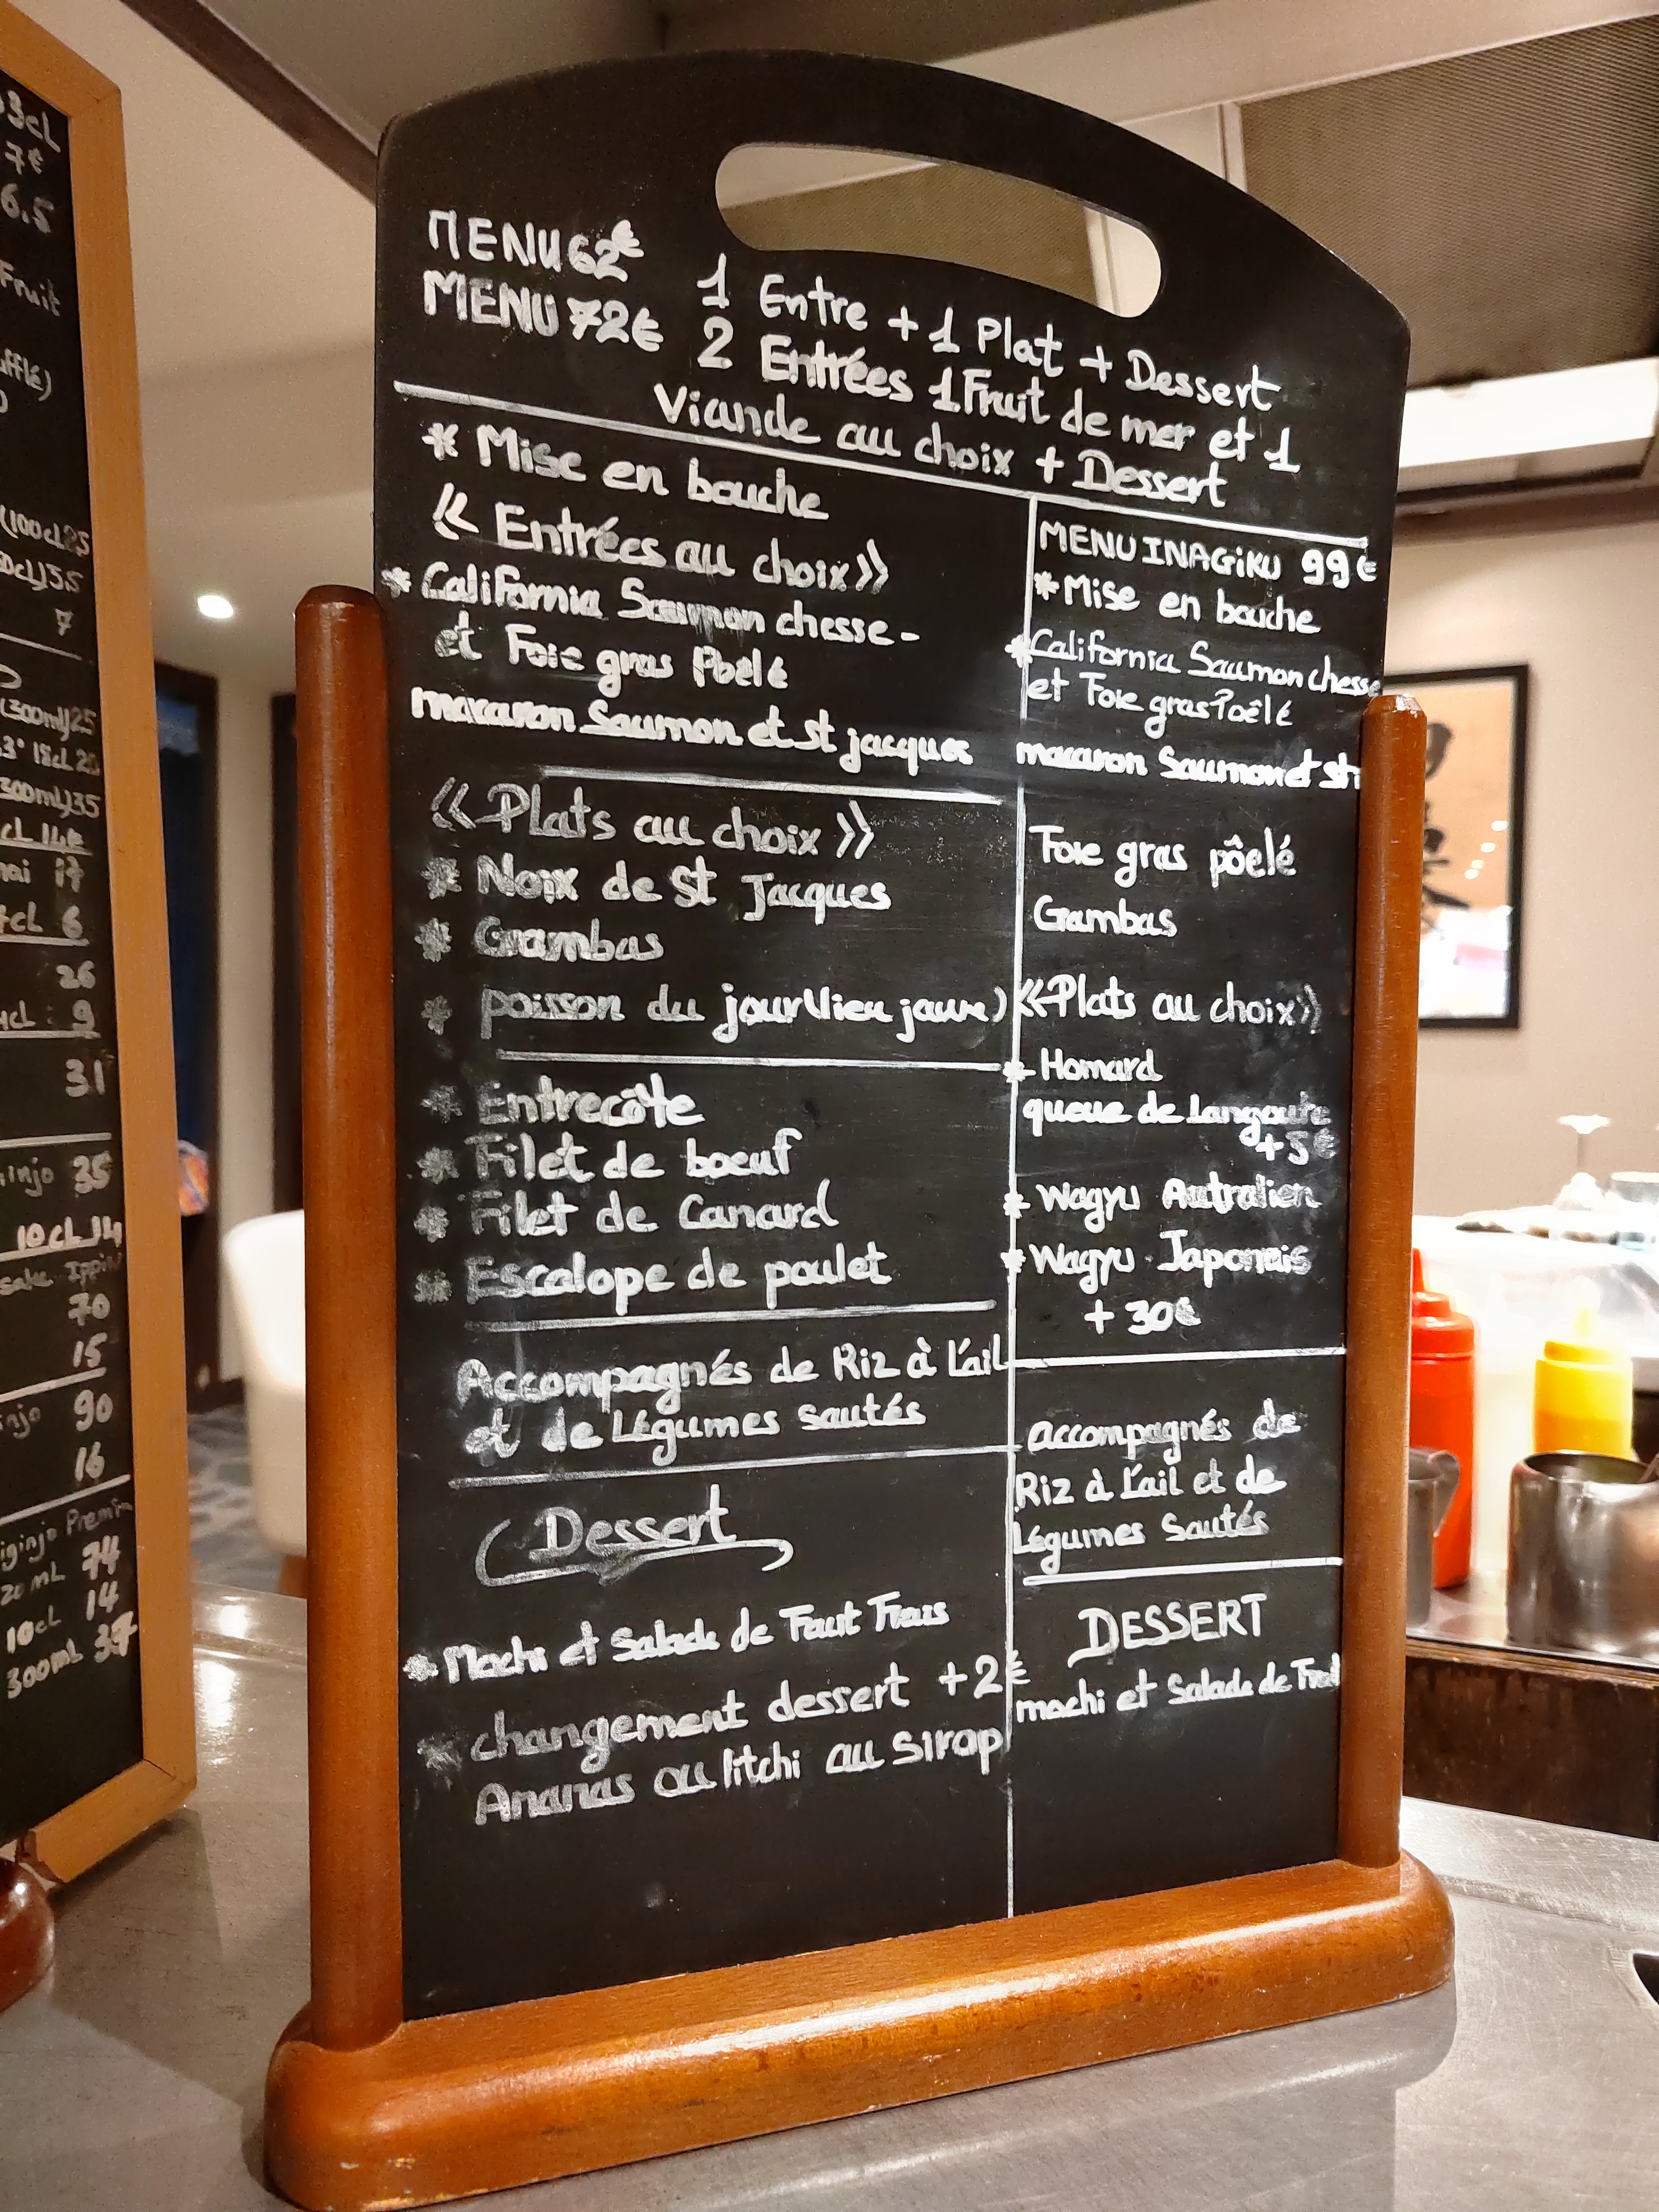 3cL
7€
6.5
Fruit
MENU 62€ 1 Entre + 1 Plat + Dessert
MENU 72€ 2 Entrées 1 Fruit de mer et 1
Viande au choix + Dessert
* Mise en bouche
« Entrées au choix »
* California Saumon chesse -
et Foie gras Poêlé
macaron Saumon et st jacques
« Plats au choix »
* Noix de St Jacques
* Gambas
* poisson du jour (lieu jaune)
* Entrecôte
* Filet de boeuf
* Filet de Canard
* Escalope de poulet
Accompagnés de Riz à L'ail
et de Légumes sautés
Dessert
* Mochi et Salade de Fruit Frais
* changement dessert +2€
Ananas ou litchi au Sirop
MENU INAGiKU 99€
* Mise en bouche
* California Saumon chesse
et Foie gras Poêlé
macaron Saumon et st
Foie gras pôelé
Gambas
«Plats au choix»
* Homard
queue de Langouste
+5€
* Wagyu Australien
* Wagyu Japonais
+ 30€
accompagnés de
Riz à L'ail et de
Légumes Sautés
DESSERT
mochi et Salade de Fruit
(300ml) 25
26
31
35
10cL 14
70
15
90
16
74
10cL 14
300mL 37